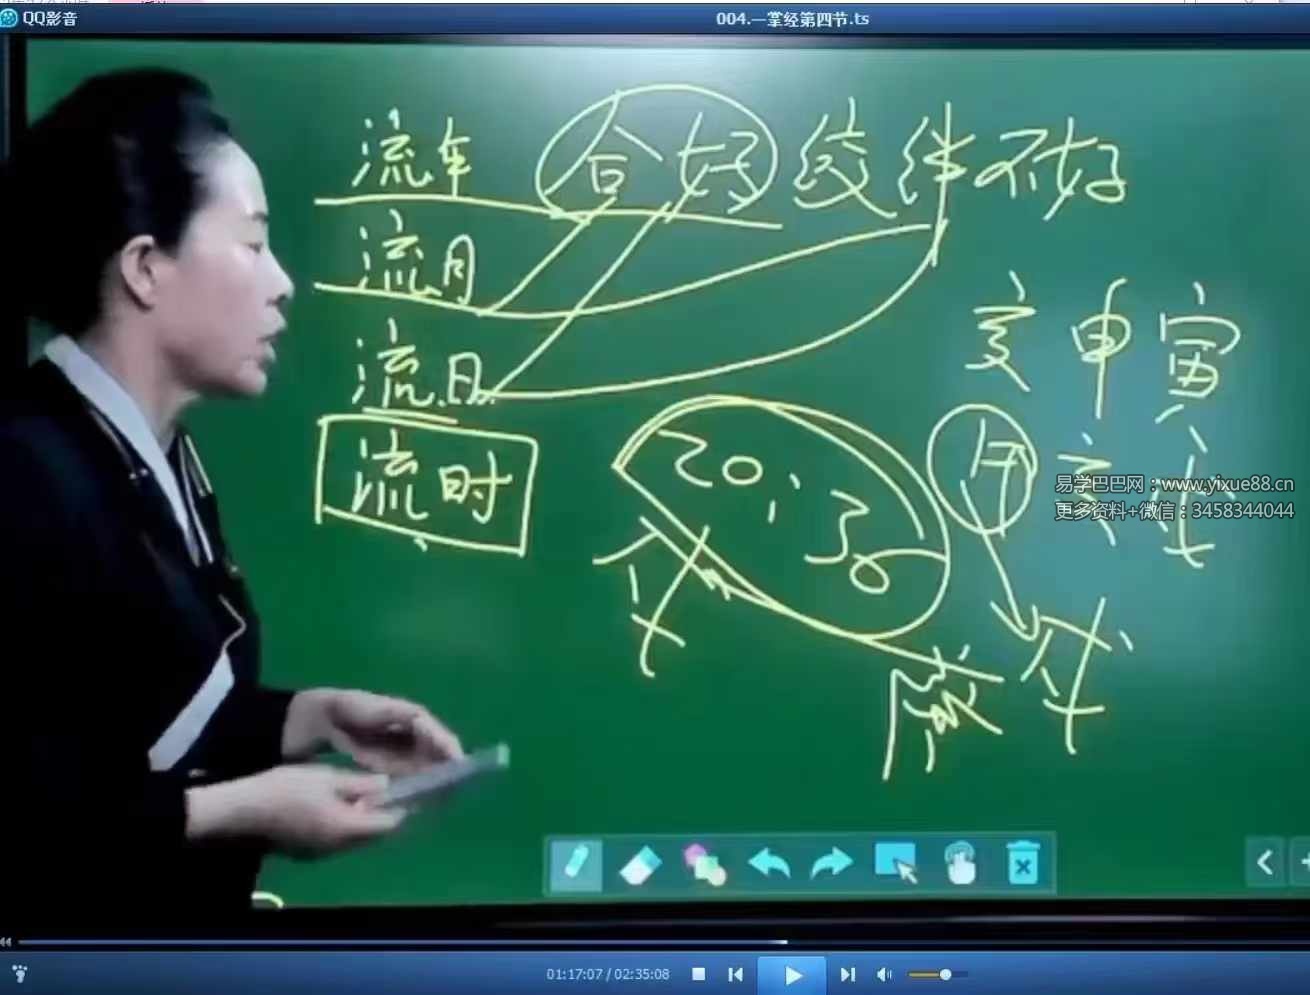 QQ影音
004.一掌经第四节.ts
流年 合好 绞绊不好
流月
亥申寅
流日
流时
20:30
易学巴巴网：www.yixue88.cn
更多资料+微信：3458344044
01:17:07 / 02:35:08